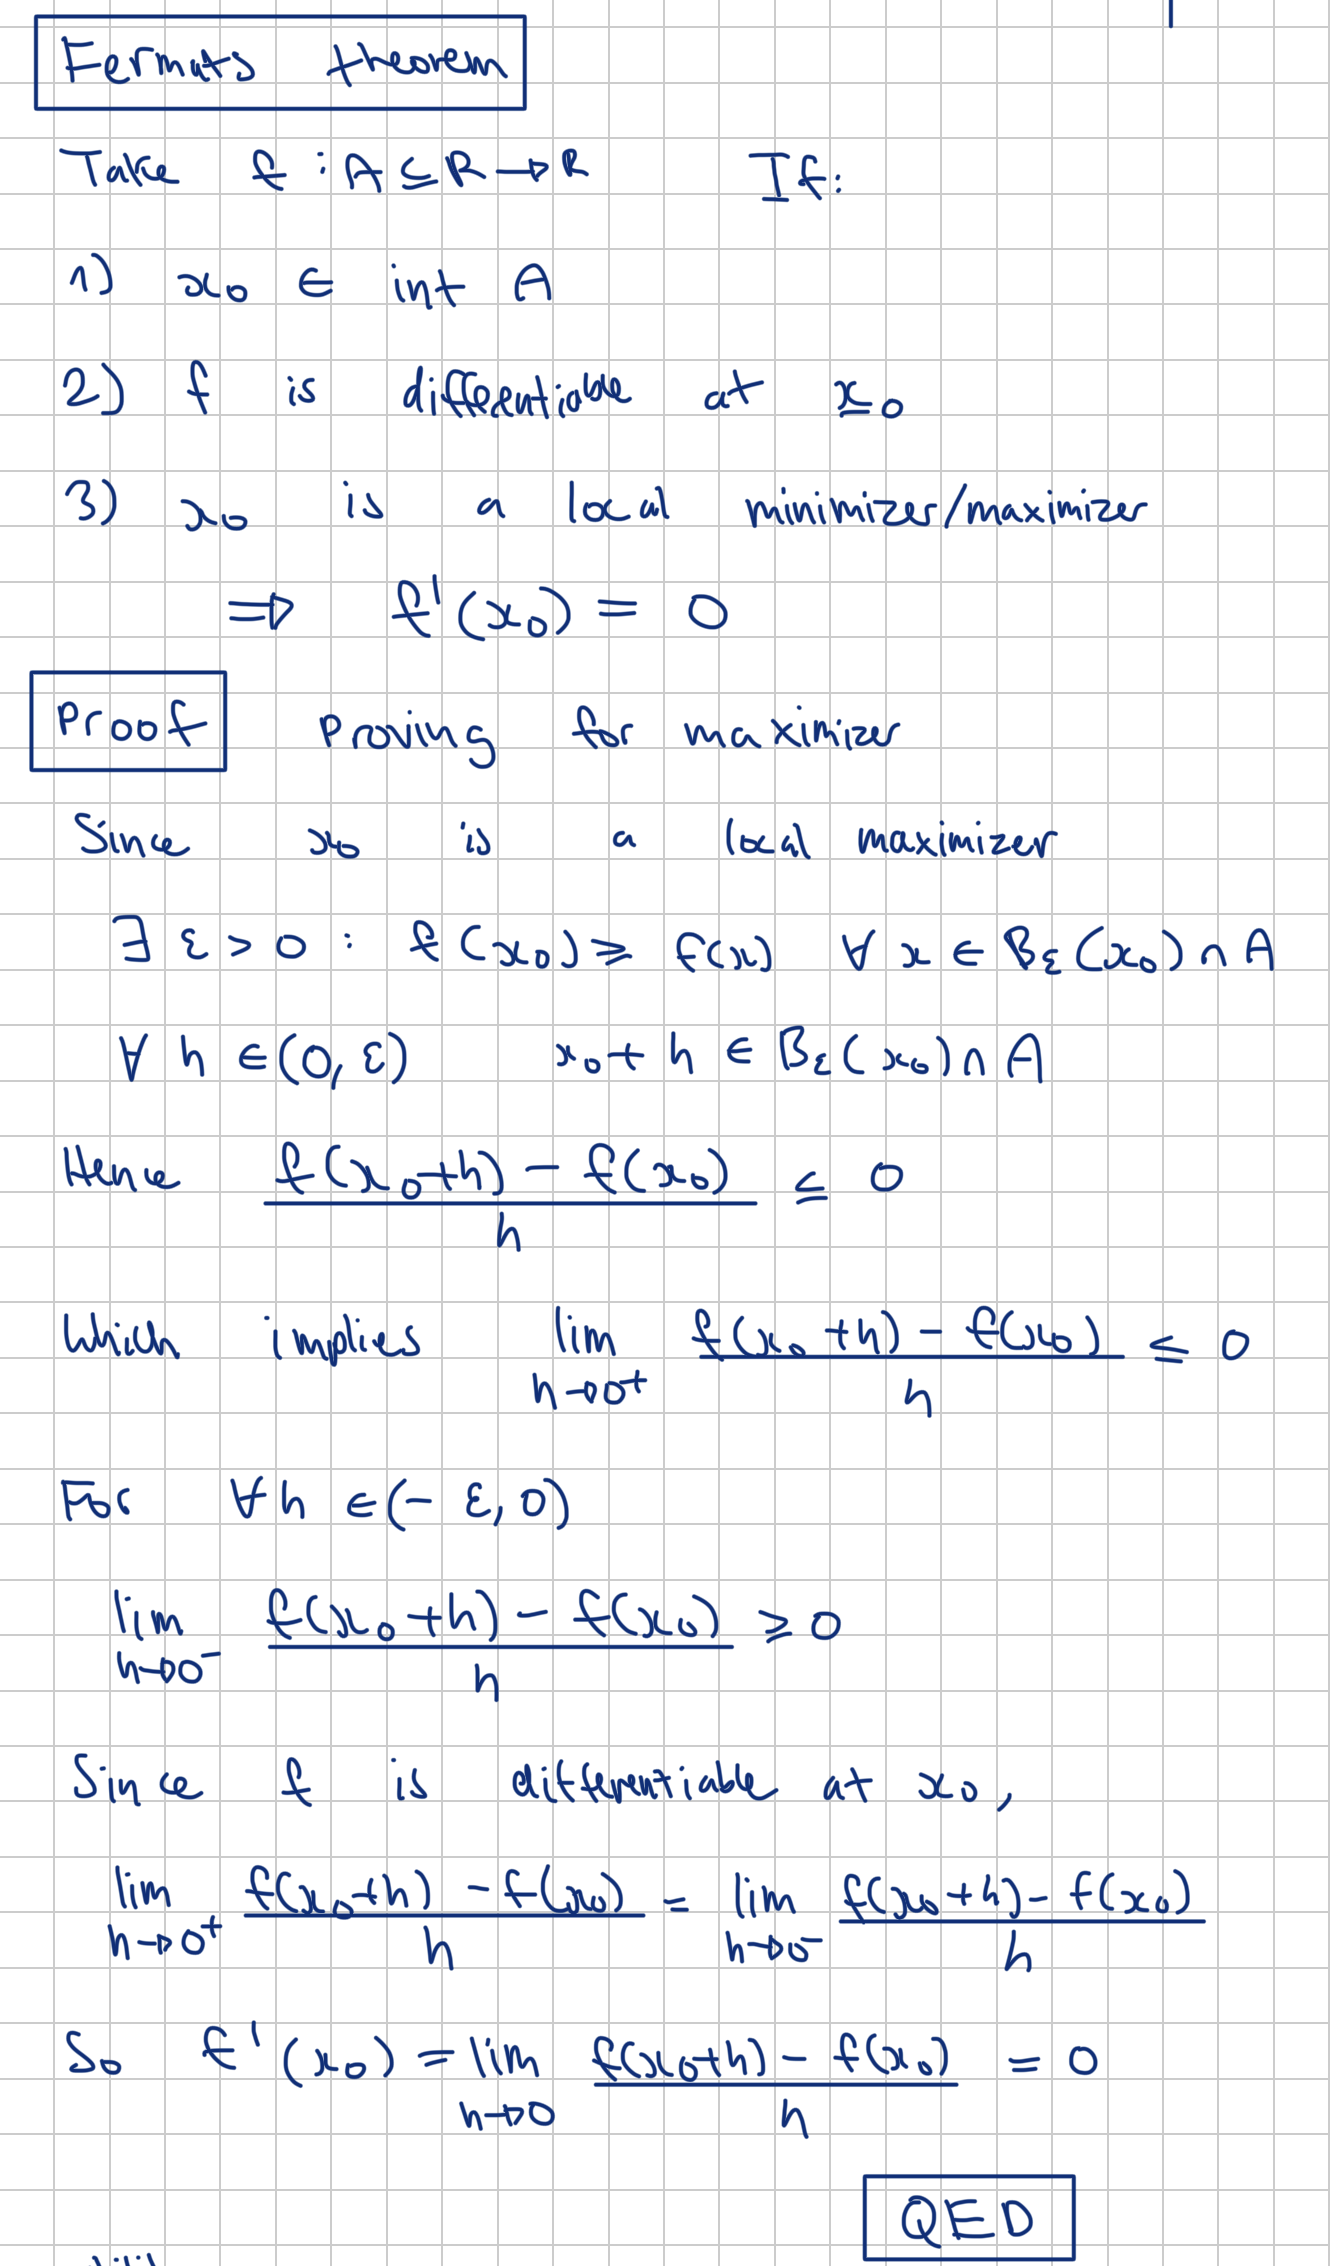 Fermats theorem
Take f : A ⊆ R → R If:
1) x₀ ∈ int A
2) f is differentiable at x₀
3) x₀ is a local minimizer/maximizer
⇒ f'(x₀) = 0
Proof Proving for maximizer
Since x₀ is a local maximizer
∃ ε > 0 : f(x₀) ≥ f(x) ∀ x ∈ B_ε(x₀) ∩ A
∀ h ∈ (0, ε) x₀ + h ∈ B_ε(x₀) ∩ A
Hence (f(x₀+h) − f(x₀))/h ≤ 0
Which implies lim h→0⁺ (f(x₀+h) − f(x₀))/h ≤ 0
For ∀h ∈ (−ε, 0)
lim h→0⁻ (f(x₀+h) − f(x₀))/h ≥ 0
Since f is differentiable at x₀,
lim h→0⁺ (f(x₀+h) − f(x₀))/h = lim h→0⁻ (f(x₀+h) − f(x₀))/h
So f'(x₀) = lim h→0 (f(x₀+h) − f(x₀))/h = 0
QED